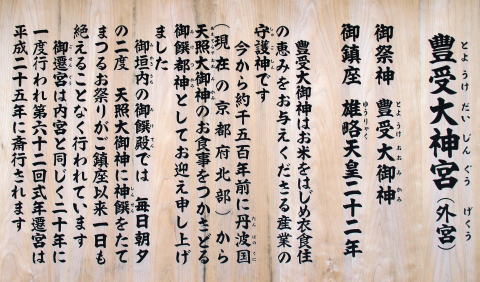 豊受大神宮（外宮）
とようけだいじんぐう げくう
御祭神 豊受大御神
とようけおおみかみ
御鎮座 雄略天皇二十二年
ゆうりゃく
豊受大御神はお米をはじめ衣食住
の恵みをお与えくださる産業の
守護神です
今から約千五百年前に丹波国
たんばのくに
（現在の京都府北部）から
天照大御神のお食事をつかさどる
御饌都神としてお迎え申し上げ
みけつかみ
ました
御垣内の御饌殿では 毎日朝夕
の二度 天照大御神に神饌をたて
まつるお祭りがご鎮座以来一日も
絶えることなく行われています
御遷宮は内宮と同じく二十年に
一度行われ第六十二回式年遷宮は
平成二十五年に斎行されます